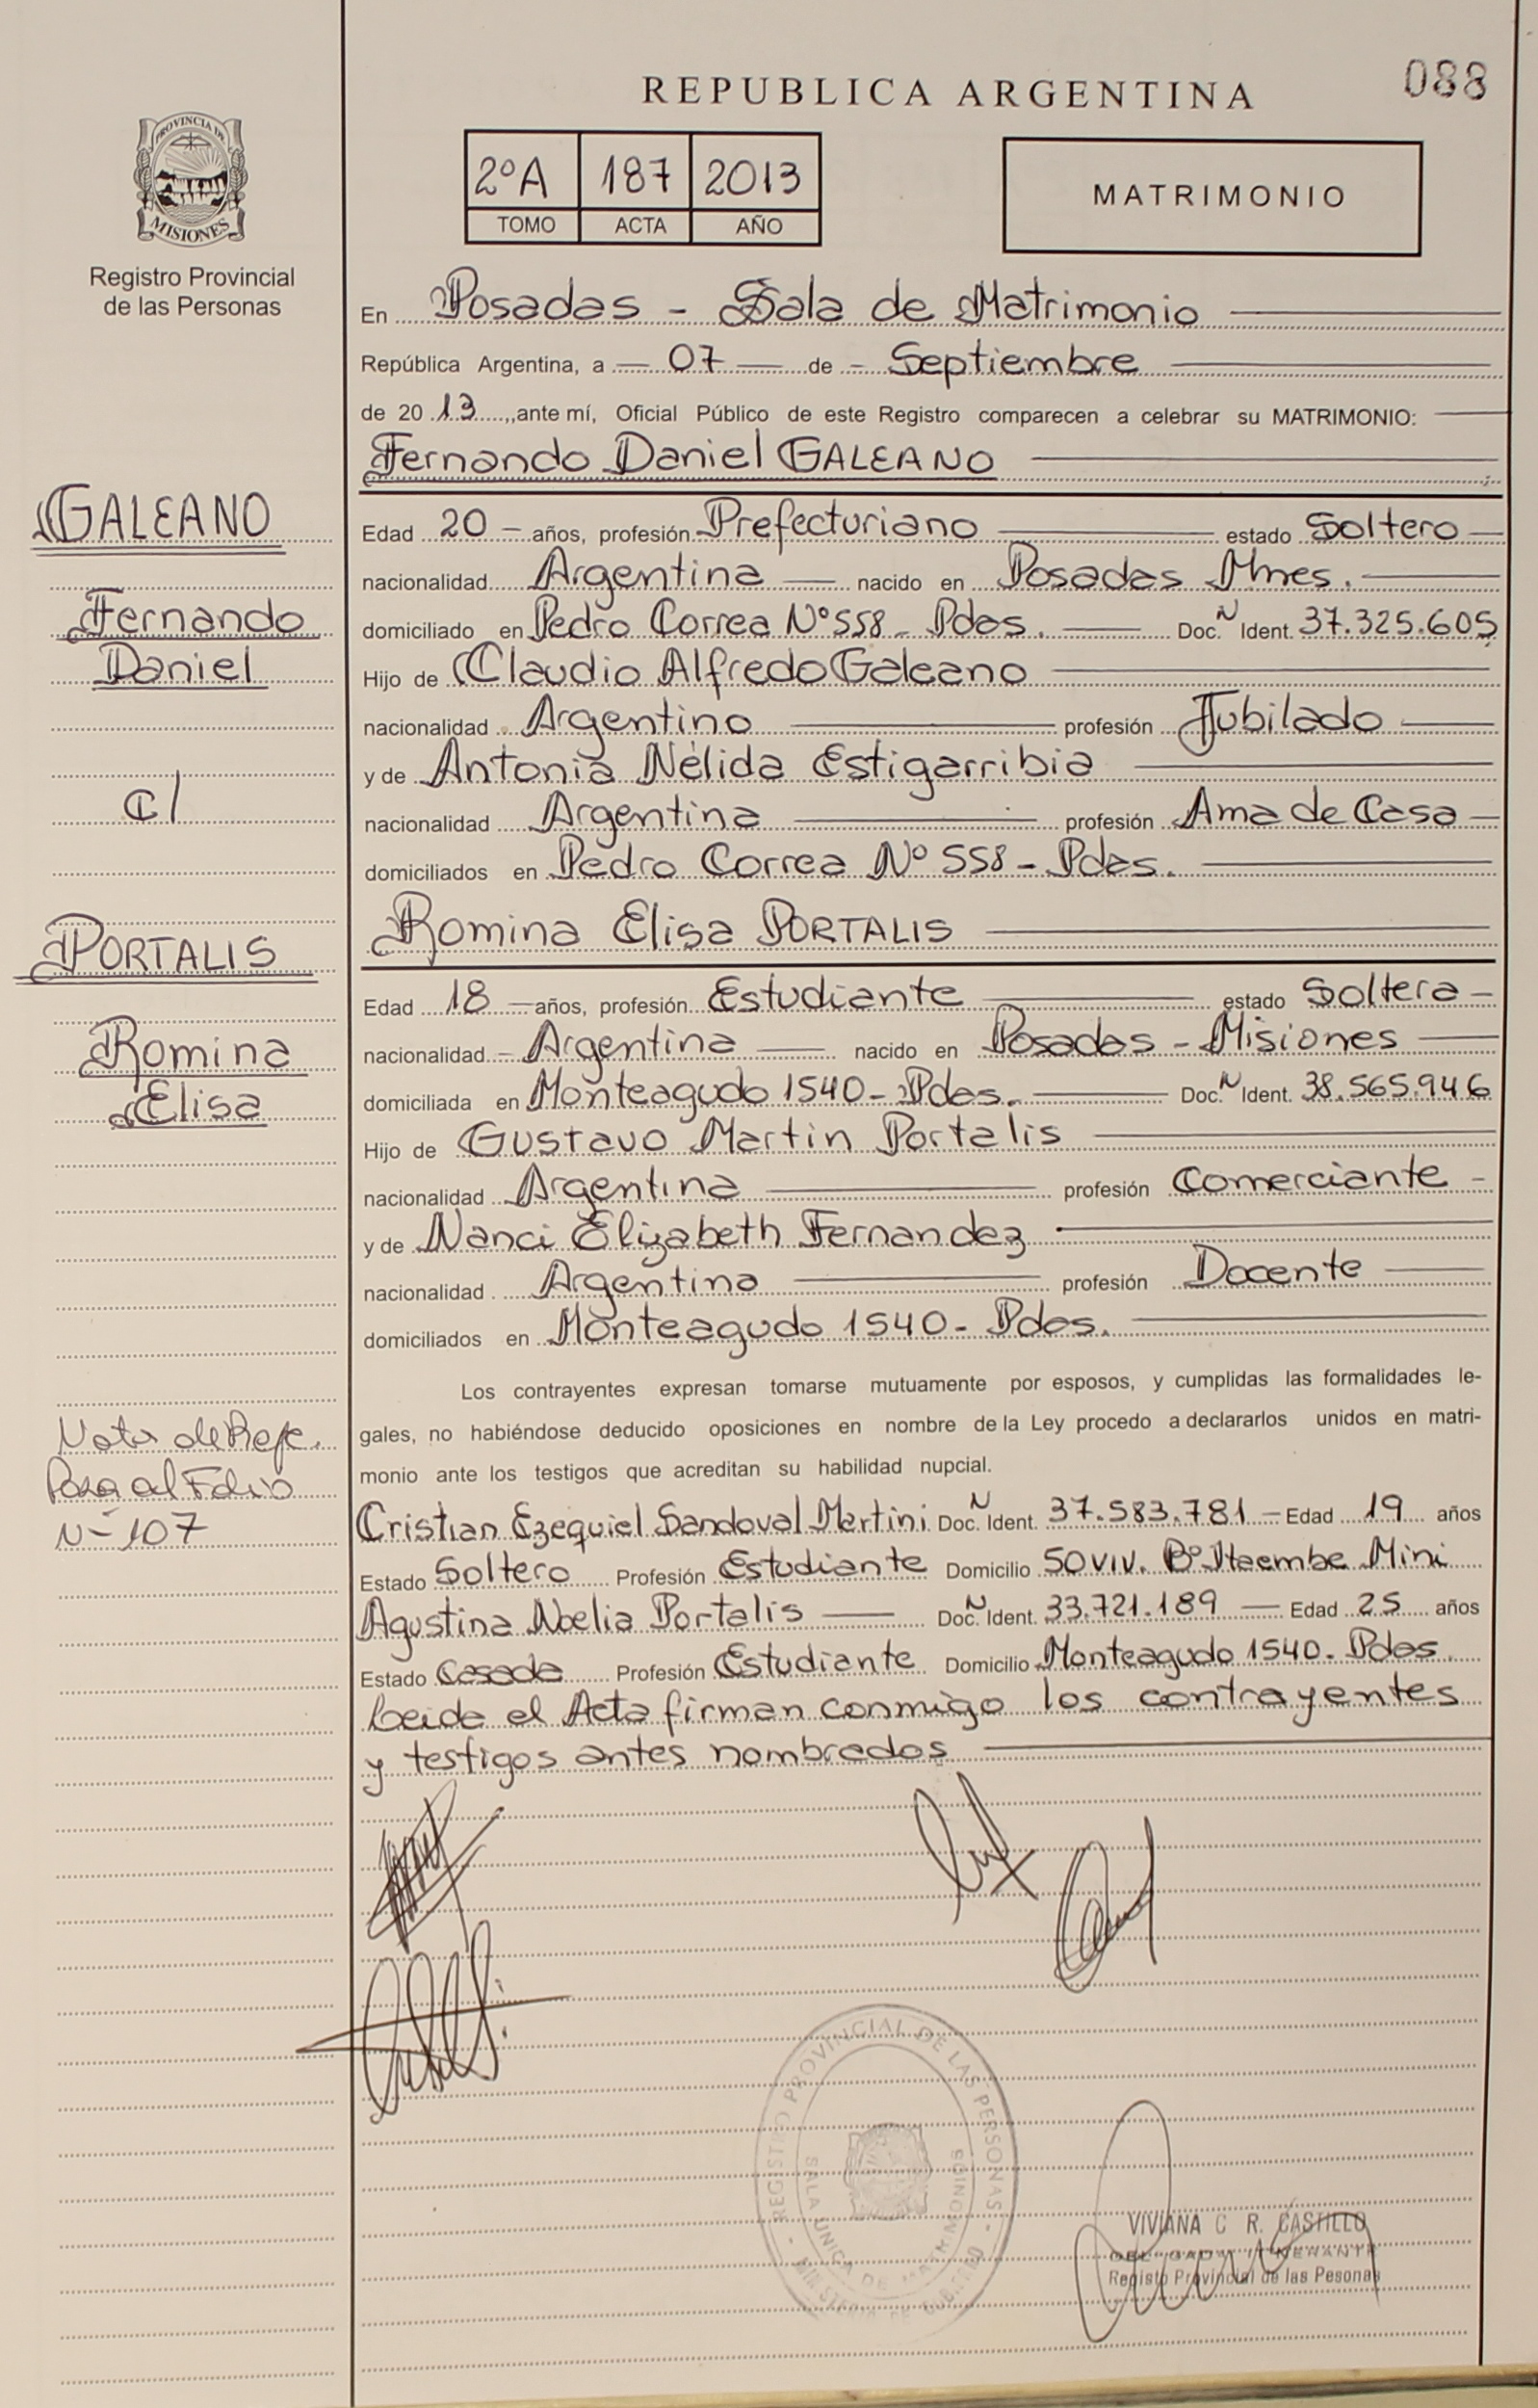 088
REPUBLICA ARGENTINA
PROVINCIA DE
MISIONES
Registro Provincial
de las Personas
2ºA 187 2013
TOMO ACTA AÑO
MATRIMONIO
En Posadas - Sala de Matrimonio
República Argentina, a 07 de Septiembre
de 2013, ante mí, Oficial Público de este Registro comparecen a celebrar su MATRIMONIO:
Fernando Daniel GALEANO
GALEANO
Fernando
Daniel
c/
PORTALIS
Romina
Elisa
Edad 20 años, profesión Prefecturiano estado Soltero
nacionalidad Argentina nacido en Posadas Mnes.
domiciliado en Pedro Correa Nº 558 - Pdas. Doc. N Ident. 37.325.605
Hijo de Claudio Alfredo Galeano
nacionalidad Argentino profesión Jubilado
y de Antonia Nélida Estigarribia
nacionalidad Argentina profesión Ama de Casa
domiciliados en Pedro Correa Nº 558 - Pdas.
Romina Elisa PORTALIS
Edad 18 años, profesión Estudiante estado Soltera
nacionalidad Argentina nacido en Posadas - Misiones
domiciliada en Monteagudo 1540 - Pdas. Doc. N Ident. 38.565.946
Hijo de Gustavo Martin Portalis
nacionalidad Argentina profesión Comerciante
y de Nanci Elizabeth Fernandez
nacionalidad Argentina profesión Docente
domiciliados en Monteagudo 1540 - Pdas.
Los contrayentes expresan tomarse mutuamente por esposos, y cumplidas las formalidades le-
gales, no habiéndose deducido oposiciones en nombre de la Ley procedo a declararlos unidos en matri-
monio ante los testigos que acreditan su habilidad nupcial.
Nota de Refe.
Pasa al Folio
Nº 107
Cristian Ezequiel Sandoval Martini Doc. N Ident. 37.583.781 - Edad 19 años
Estado Soltero Profesión Estudiante Domicilio 50 viv. Bº Itaembe Mini
Agustina Noelia Portalis Doc. N Ident. 33.721.189 - Edad 25 años
Estado Casada Profesión Estudiante Domicilio Monteagudo 1540 - Pdas.
Leida el Acta firman conmigo los contrayentes
y testigos antes nombrados
REGISTRO PROVINCIAL DE LAS PERSONAS
SALA UNICA DE MATRIMONIOS
VIVIANA C R. CASTILLO
Registo Provincial de las Pesonas